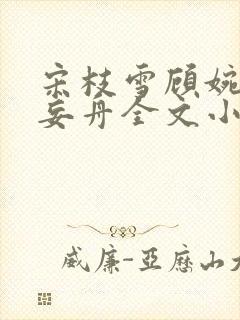 宋枝雪顾婉
妄丹全文小
威廉-亚历山大